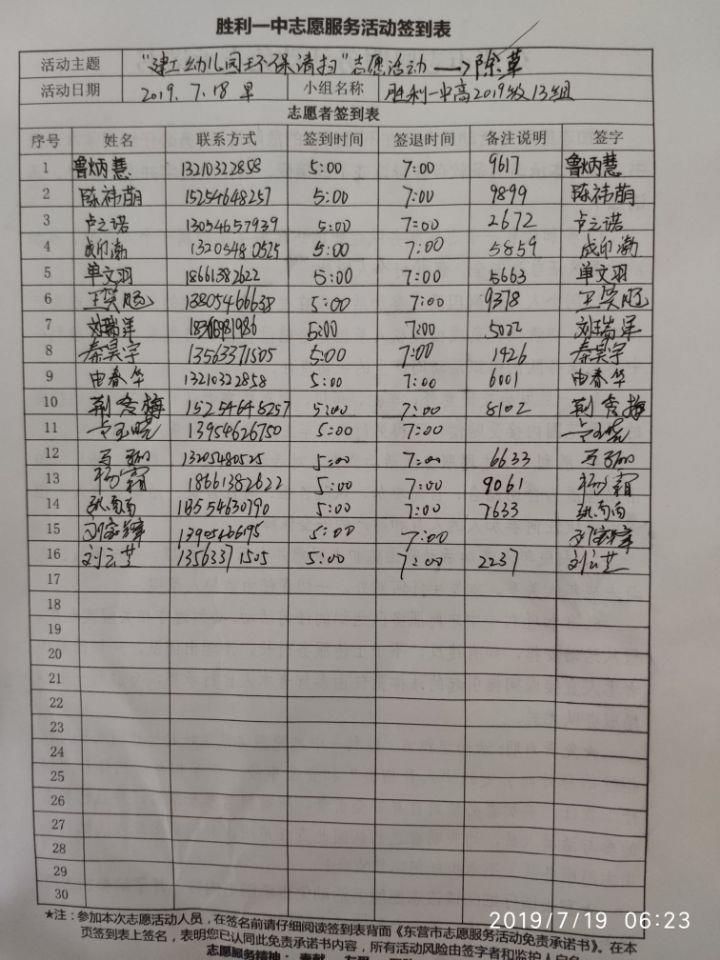 胜利一中志愿服务活动签到表
活动主题 "建幼儿园环保清扫"志愿活动 —>除草
活动日期 2019.7.18 早 小组名称 胜利一中高2019级13组
志愿者签到表
序号 姓名 联系方式 签到时间 签退时间 备注说明 签字
1 鲁炳慧 13210322858 5:00 7:00 9617 鲁炳慧
2 陈祎萌 15254648257 5:00 7:00 9899 陈祎萌
3 卢之诺 13054657939 5:00 7:00 2672 卢之诺
4 成印渤 13205480525 5:00 7:00 5859 成印渤
5 单文羽 18661382622 5:00 7:00 5663 单文羽
6 13805466638 5:00 7:00 9378
7 刘瑞军 5:00 7:00 5022 刘瑞军
8 秦昊宇 13563371505 5:00 7:00 1926 秦昊宇
9 由春华 13210322858 5:00 7:00 6001 由春华
10 15254648257 5:00 7:00 8102
11 卢玉晓 13954626750 5:00 7:00 卢玉晓
12 13205480525 5:00 7:00 6633
13 杨霜 18661382622 5:00 7:00 9061 杨霜
14 5:00 7:00 7633
15 5:00 7:00
16 刘云芝 13563371505 5:00 7:00 2237 刘云芝
17
18
19
20
21
22
23
24
25
26
27
28
29
30
★注：参加本次志愿活动人员，在签名前请仔细阅读签到表背面《东营市志愿服务活动免责承诺书》。在本
页签到表上签名，表明您已认同此免责承诺书内容，所有活动风险由签字者和监护人自负
志愿服务精神：奉献
2019/7/19 06:23